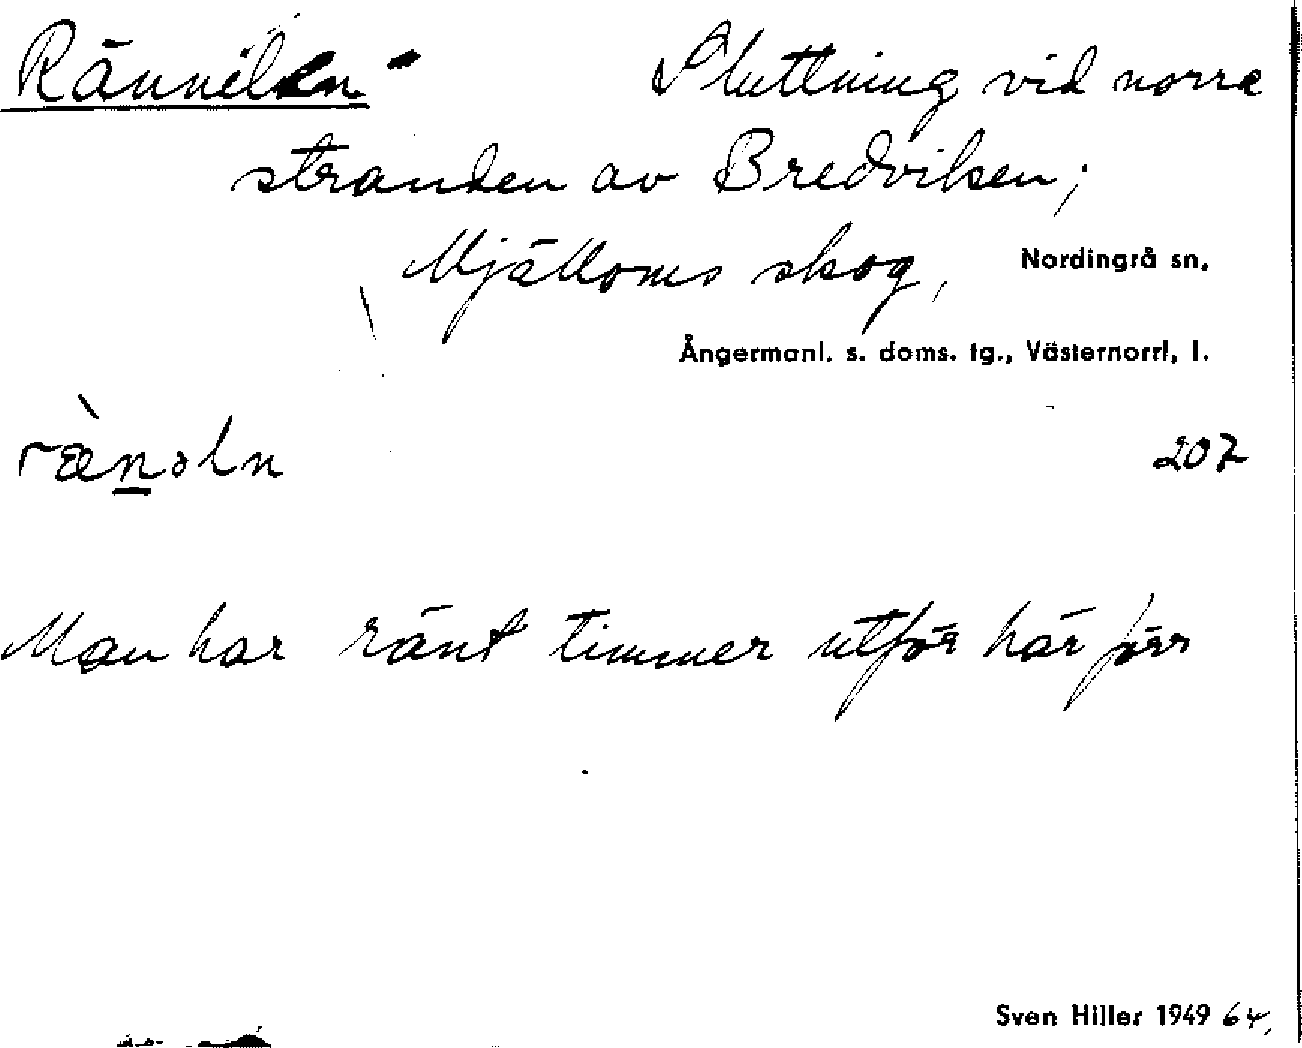 Rännilen Sluttning vid norra
stranden av Bredviken,
Mjälloms skog, Nordingrå sn,
Ångermanl. s. doms. tg., Västernorrl. l.
207
Man har ränt timmer utför här förr
Sven Hiller 1949 64,